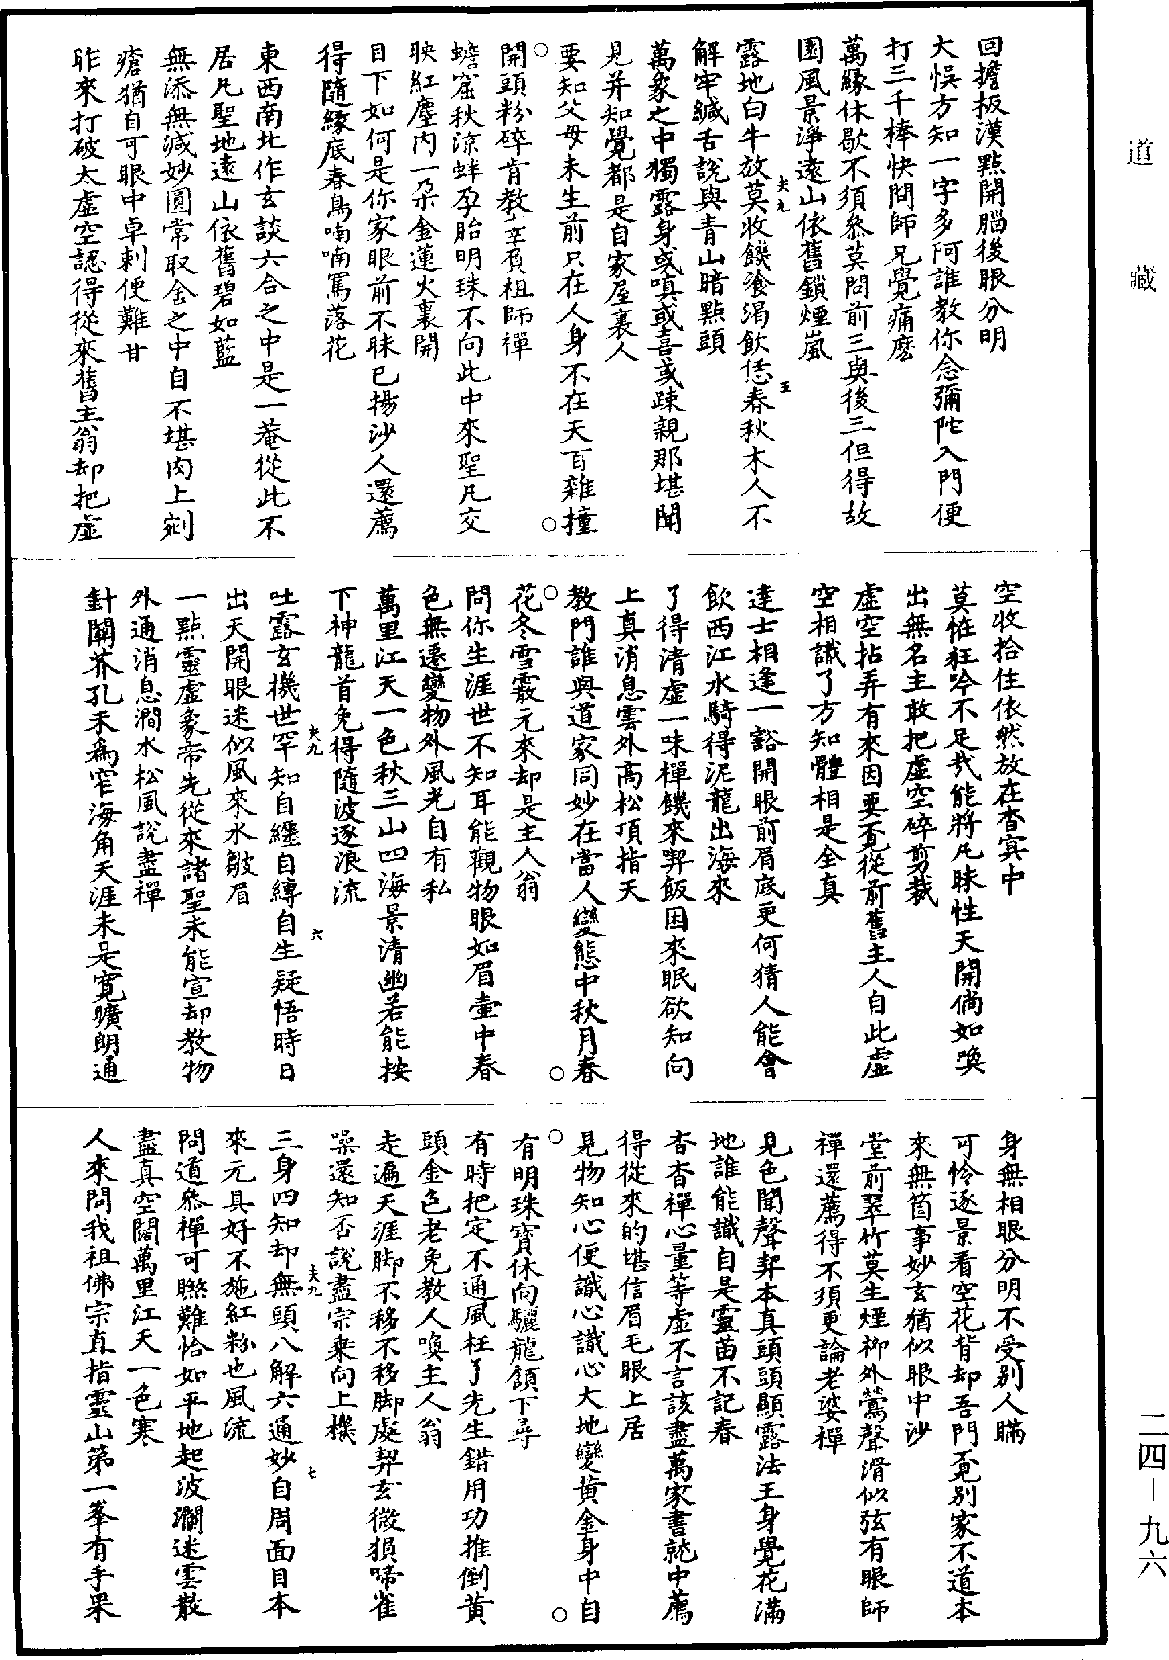 道藏
回擔板漢點開腦後眼分明
大悞方知一字多阿誰教你念彌陀入門便
打三千棒快問師兄覺痛麽
萬緣休歇不須叅莫問前三與後三但得故
園風景淨遠山依舊鎖煙嵐
夫九
露地白牛放莫收饑飡渴飲恁春秋木人不
五
解牢緘舌說與青山暗點頭
萬象之中獨露身或嗔或喜或踈親那堪聞
見并知覺都是自家屋裏人
要知父母未生前只在人身不在天百雜撞
開頭粉碎肯教辜負祖師禪
蟾窟秋涼蚌孕胎明珠不向此中來聖凡交
映紅塵内一朵金蓮火裏開
目下如何是你家眼前不昧已揚沙人還薦
得隨緣底春鳥喃喃罵落花
東西南北作玄談六合之中是一菴從此不
居凡聖地遠山依舊碧如藍
無添無減妙圓常取舍之中自不堪肉上剜
瘡猶自可眼中卓刺便難甘
昨來打破太虛空認得從來舊主翁却把虛
空收拾住依然放在杳冥中
莫怪狂吟不足哉能將凡昧性天開倘如喚
出無名主敢把虛空碎剪裁
虛空拈弄有來因要覔從前舊主人自此虛
空相識了方知體相是全真
達士相逢一豁開眼前眉底更何猜人能會
飲西江水騎得泥龍出海來
了得清虛一味禪饑來喫飯困來眠欲知向
上真消息雲外高松頂指天
教門誰與道家同妙在當人變態中秋月春
花冬雪霰元來却是主人翁
問你生涯世不知耳能觀物眼如眉壷中春
色無遷變物外風光自有私
萬里江天一色秋三山四海景清幽若能按
下神龍首免得隨波逐浪流
夫九
六
吐露玄機世罕知自纏自縛自生疑悟時日
出天開眼迷似風來水皺眉
一點靈虛象帝先從來諸聖未能宣却教物
外通消息澗水松風說盡禪
針關芥孔未爲窄海角天涯未是寬曠朗通
身無相眼分明不受别人瞞
可怜逐景看空花背却吾門覔别家不道本
來無箇事妙玄猶似眼中沙
堂前翠竹莫生煙柳外鶯聲滑似弦有眼師
禪還薦得不須更論老婆禪
見色聞聲契本真頭頭顯露法王身覺花滿
地誰能識自是靈苗不記春
杳杳禪心量等虛不言該盡萬家書就中薦
得從來的堪信眉毛眼上居
見物知心便識心識心大地變黃金身中自
有明珠寶休向驪龍頷下尋
有時把定不通風枉了先生錯用功推倒黃
頭金色老免教人喚主人翁
走遍天涯脚不移不移脚處契玄微猿啼雀
噪還知否說盡宗乗向上機
夫九
七
三身四知却無頭八解六通妙自周面目本
來元具好不施紅粉也風流
問道叅禪可煞難恰如平地起波瀾迷雲散
盡真空闊萬里江天一色寒
人來問我祖佛宗直指靈山第一峯有手果
二四－九六